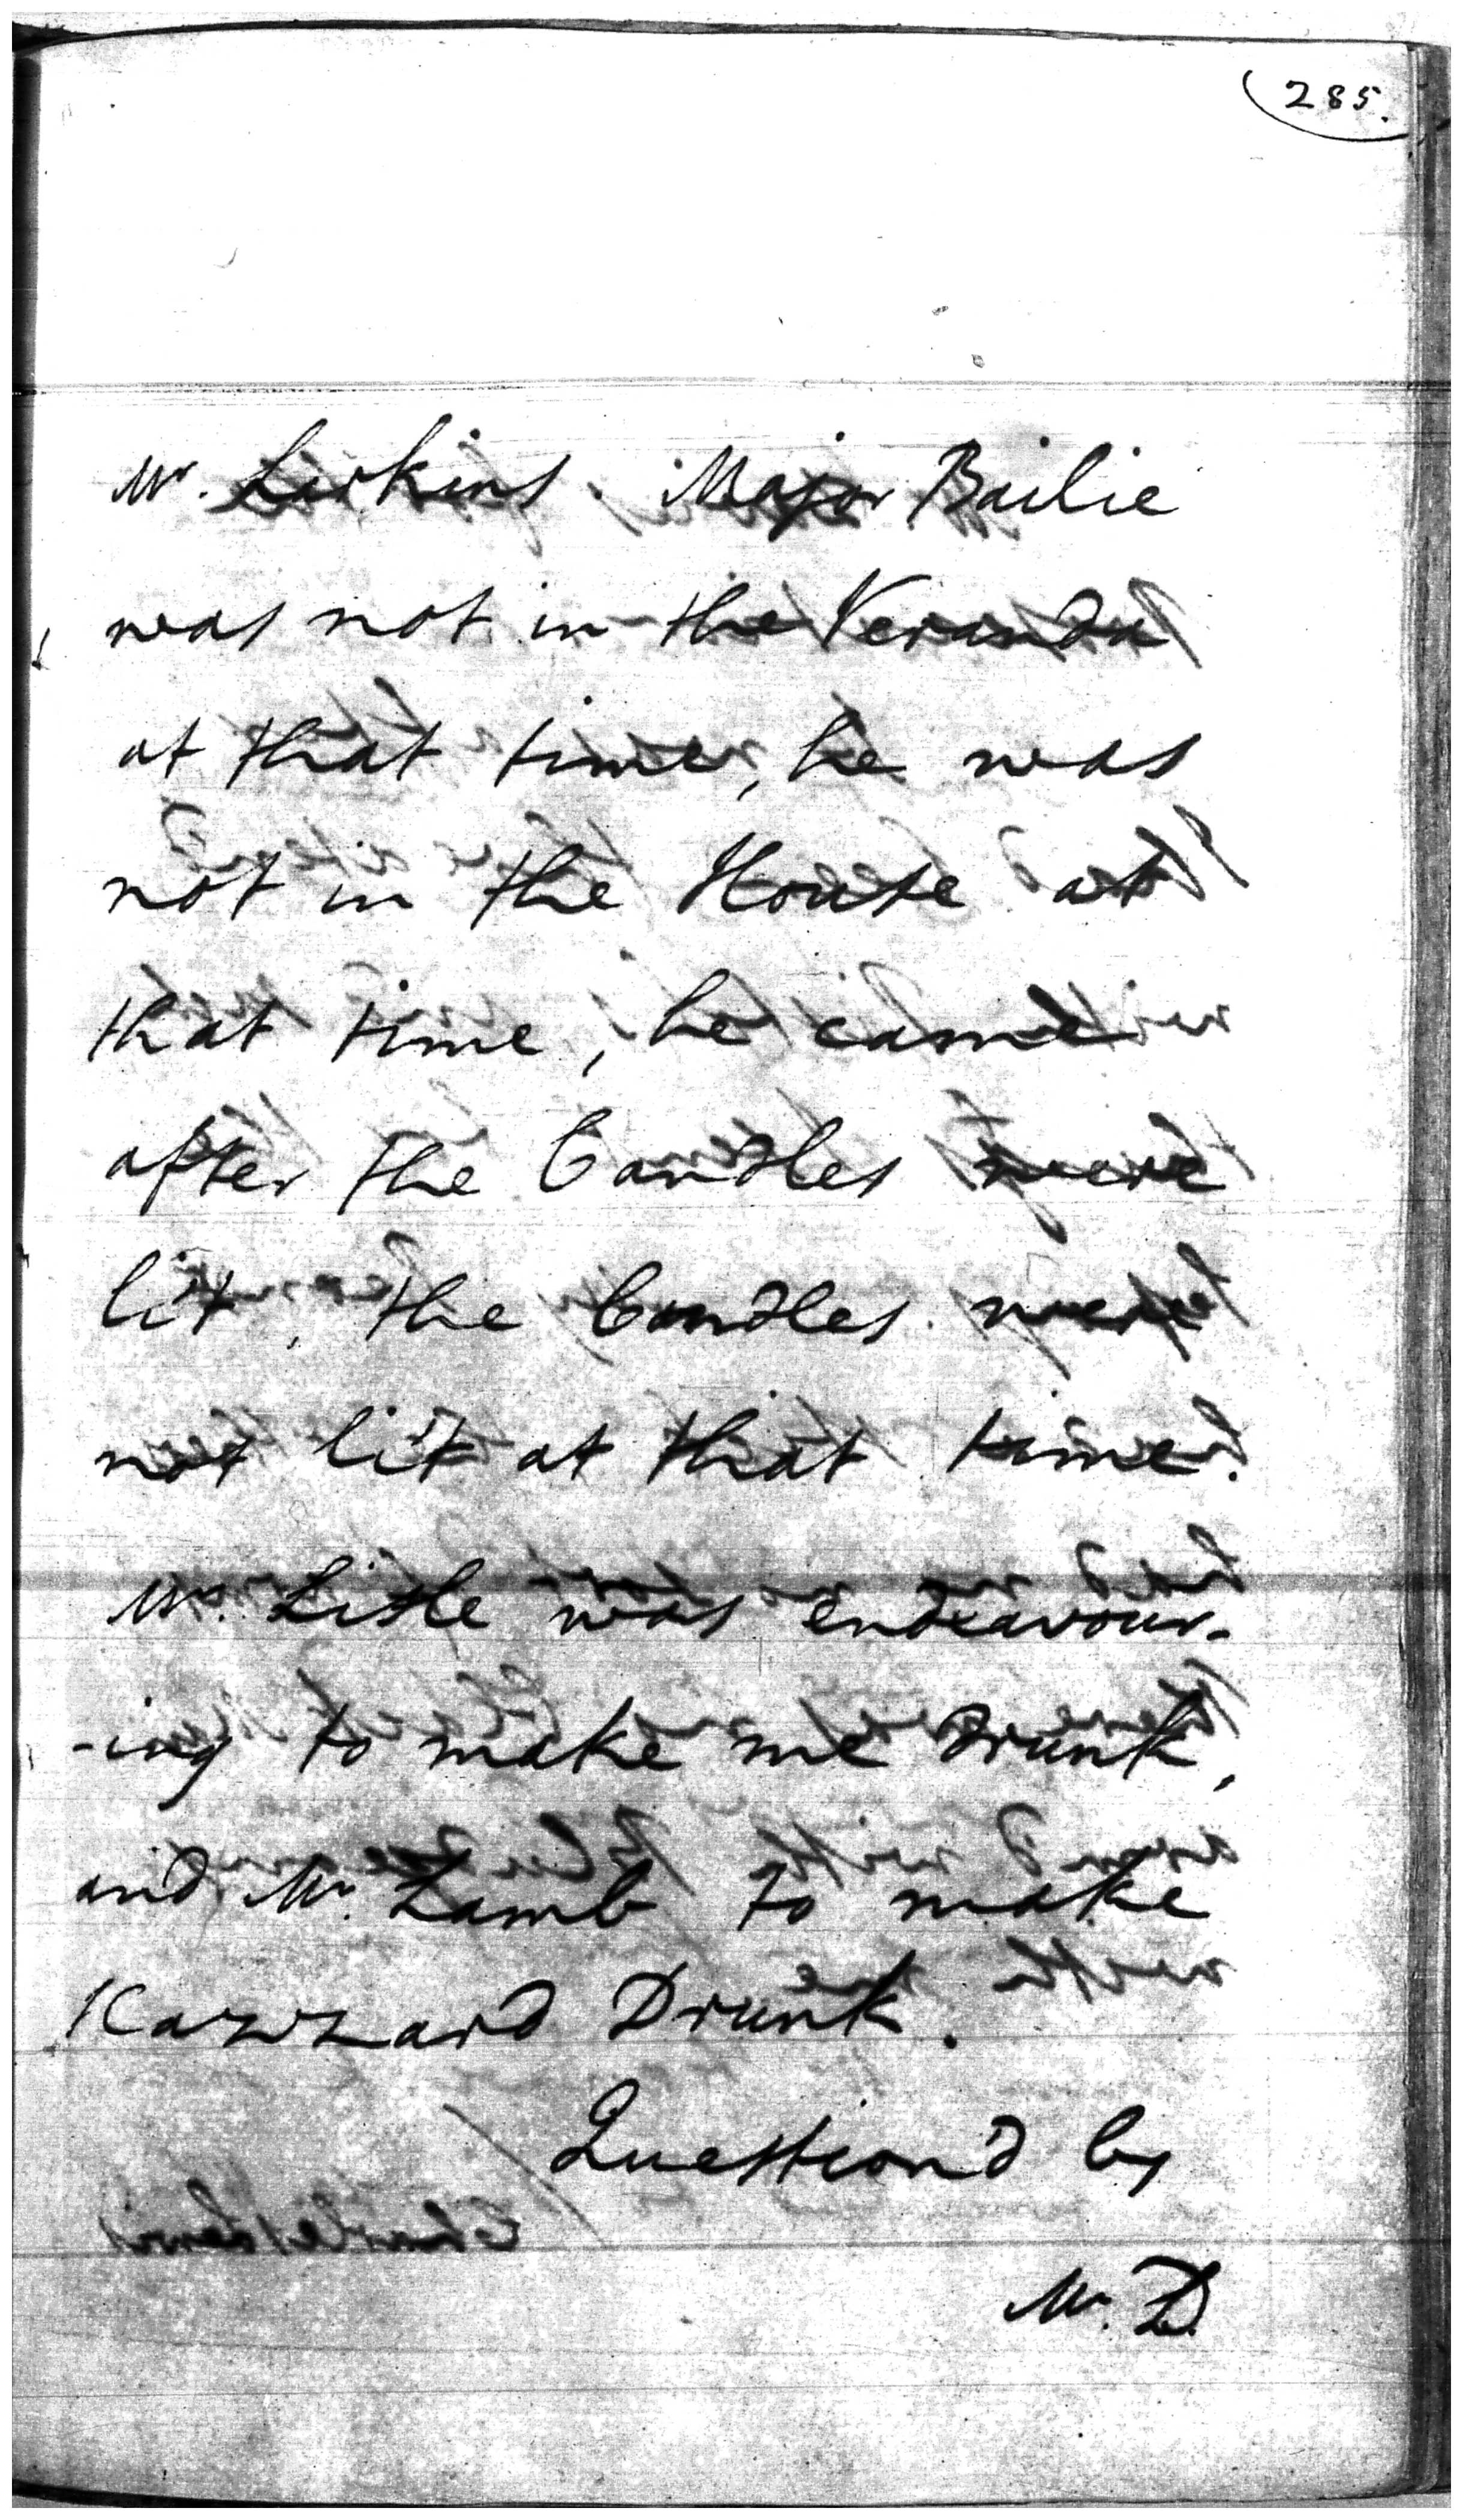 285.
Mr. Larkins. Major Bailie
was not in the Veranda
at that time, he was
not in the House at
that time, he came
after the Candles were
lit, the Candles were
not lit at that time.
Mr. Litle was endeavour-
-ing to make me Drunk,
and Mr. Lamb to make
Kazzard Drunk.
Question'd by
Mr. D